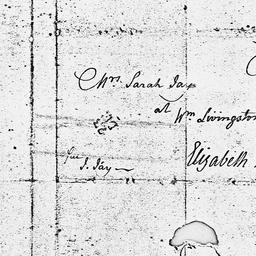 Mrs. Sarah Jay
at Wm Livingston
Elizabeth
for
J. Jay